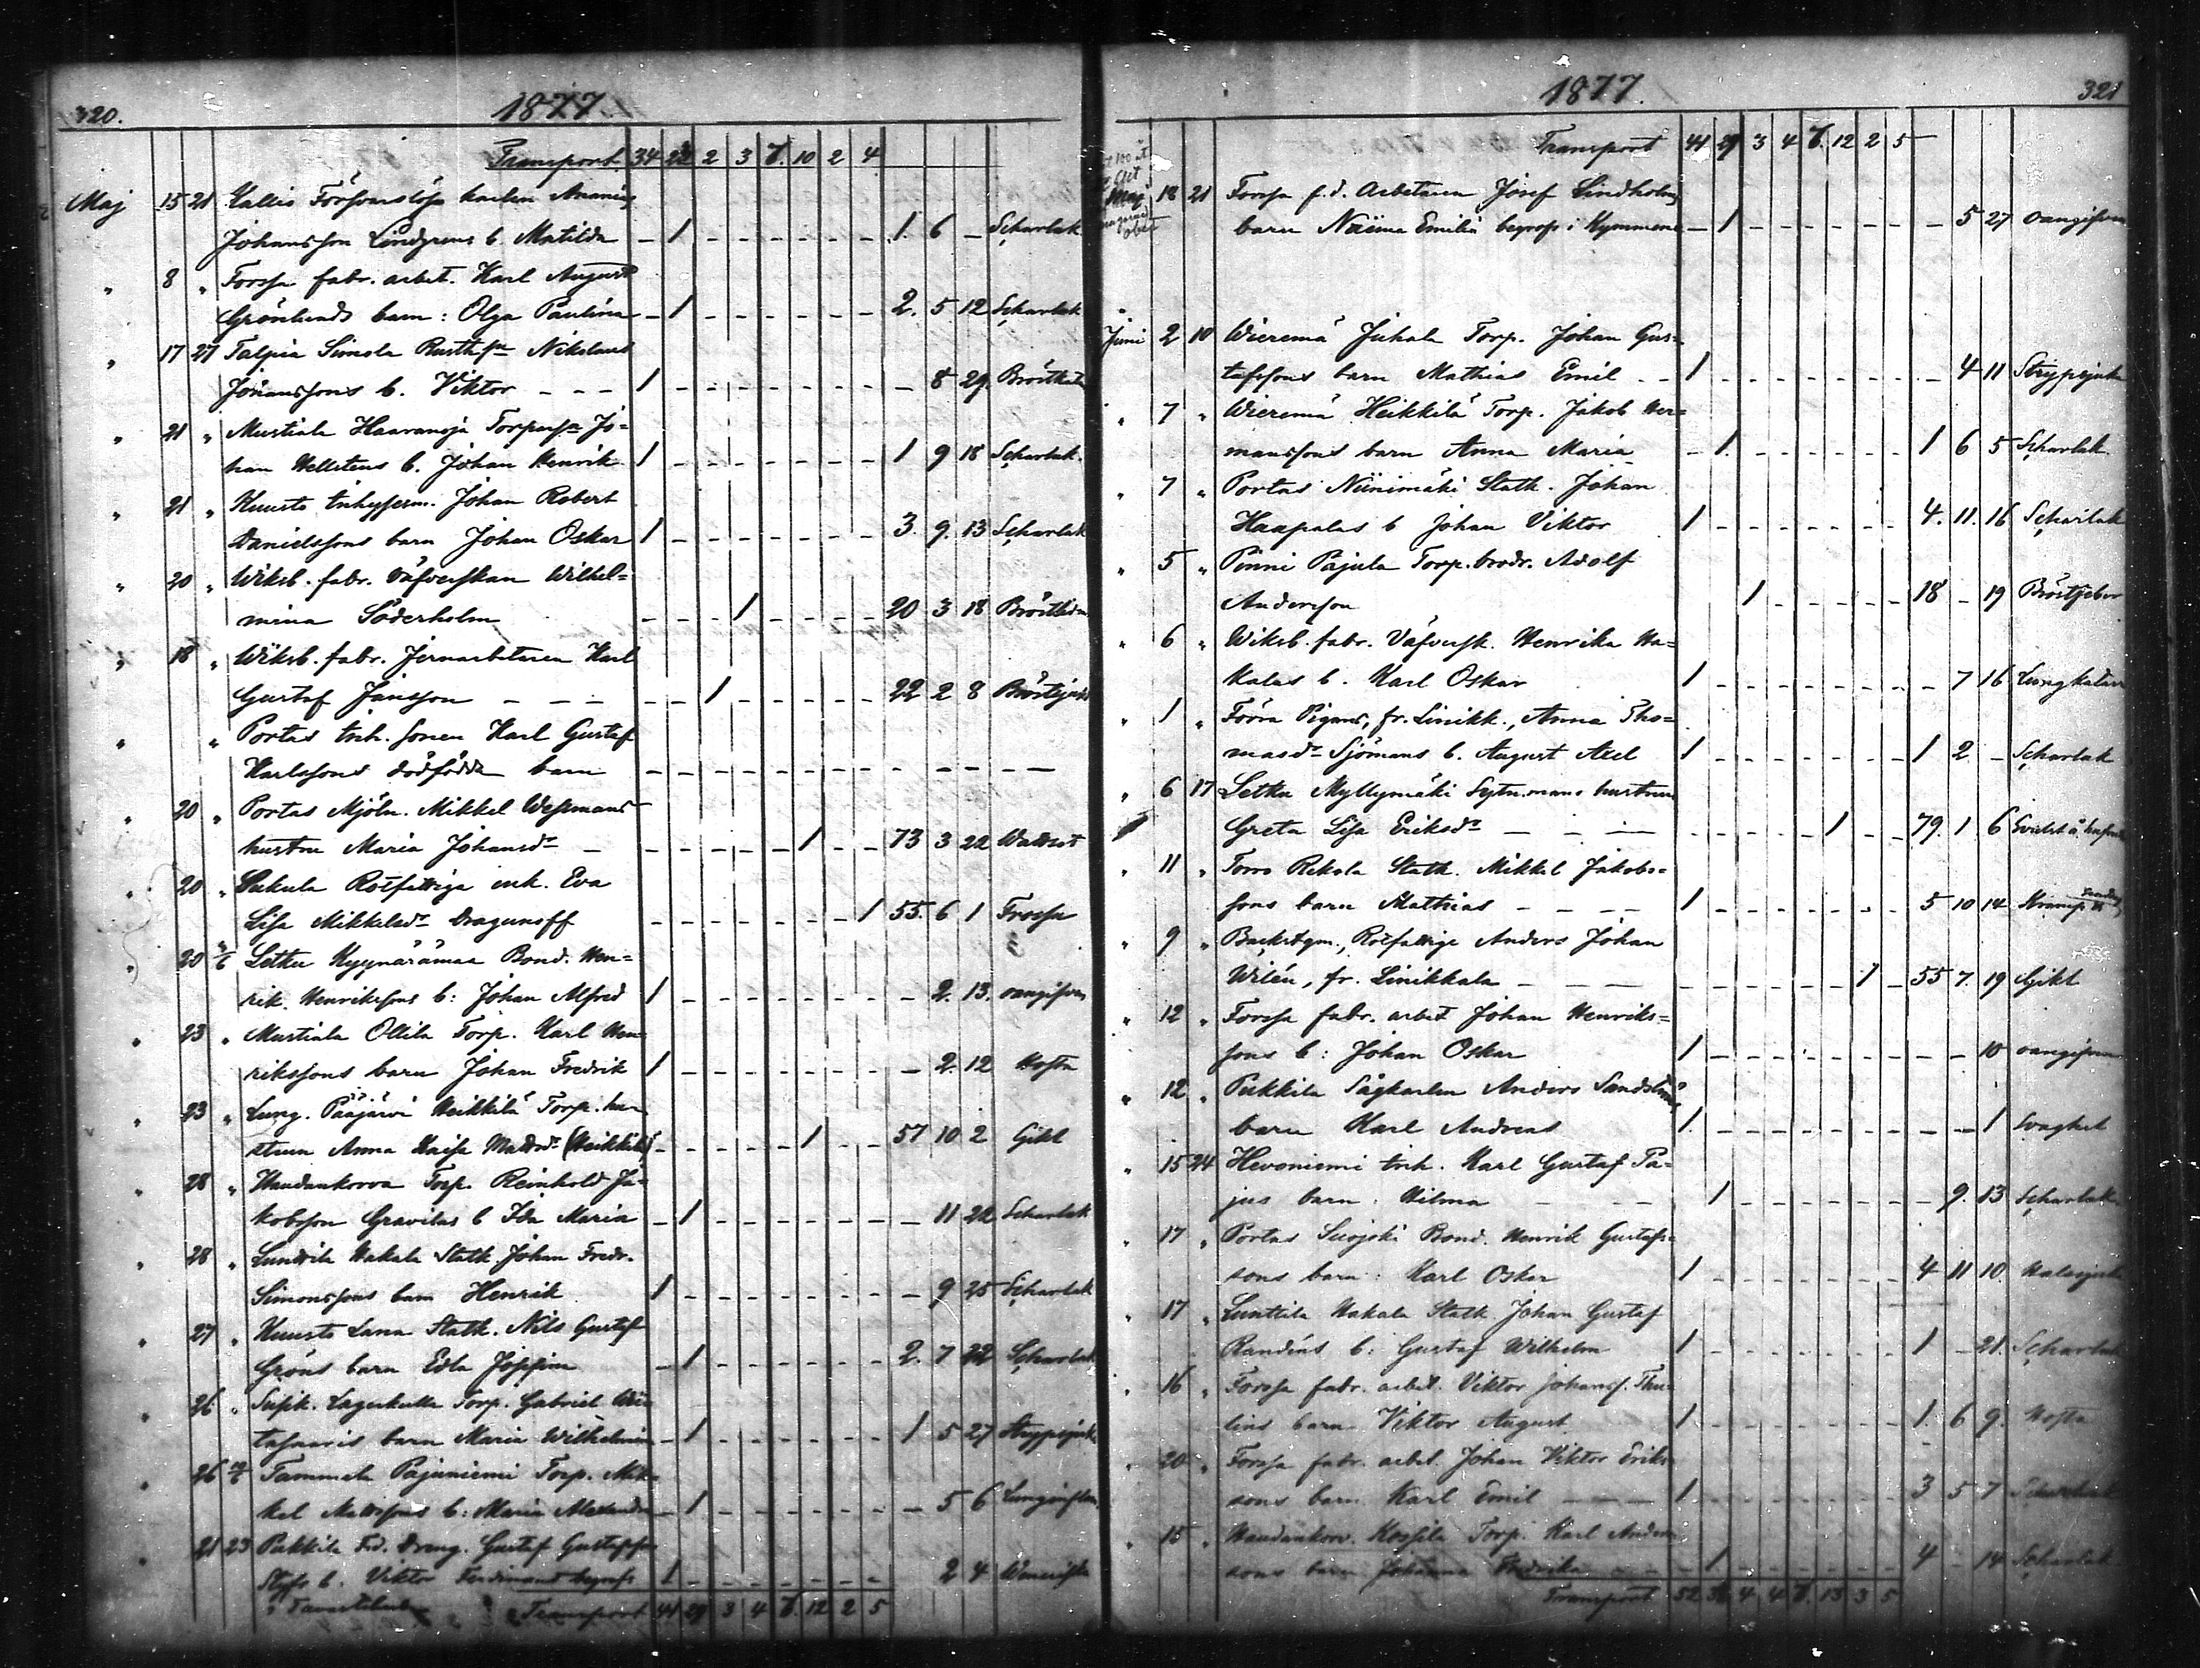 320.
1877.
Transport 34 22 2 3 7. 10 2 4
Maj 15 21 Kallis Försvarslösa karlen Ananias
Johansson Lindgrens b. Matilda - 1 - - - - - - 1. 6 - Scharlak
" 8 " Forssa fabr. arbet. Karl August
Grönlunds barn: Olga Paulina - 1 - - - - - - 2. 5 12 Scharlak
" 17 27 Talpia Simola Rusth. Nikolaus
Johanssons b. Viktor - - - 1 - - - - - - - - 8 29.
" 21 " Mustiala Haavanoja Jo=
han Hellstens b. Johan Henrik 1 - - - - - - - 1 9 18 Scharlak.
" 21 " Kuusto Johan Robert
Danielssons barn Johan Oskar 1 - - - - - - - 3. 9. 13 Scharlak
" 20 " Wiksb. fabr. väfverskan Wilhel=
mina Söderholm - - - 1 - - - - 20 3 18
" 18 " Wiksb. fabr. Jernarbetaren Karl
Gustaf Jansson - - - - - 1 - - - - - 22 2 8
" " Portas inh. sonen Karl Gustaf
Karlssons dödfödda barn - - - - - - - - - - -
" 20 " Portas Mjöln. Mikkel Wessmans
hustru Maria Johansdr - - - - - - 1 - - 73 3 22 Wattsot
" 20 " Rotfattiga enk. Eva
Lisa Mikkelsdr Dragunoff - - - - - - - 1 55. 6 1 Frossa
" 20 Letku Kyynäräinmaa Bond. Hen=
rik Henrikssons b: Johan Alfred 1 - - - - - - - - 2. 13. oangifven
" 23 " Mustiala Ollila Torp. Karl Hen=
rikssons barn Johan Fredrik 1 - - - - - - - - 2. 12 Hosta
" 23 " Lung. Pääjärvi Heikkilä Torp. hu=
strun Anna Kaisa Mattsdr (Heikkilä) - - - - - 1 - - 57 10 2 Gikt
" 28 " Haudankorva Torp. Reinhold Ja=
kobsson Gravilas b Ida Maria - 1 - - - - - - - 11 22 Scharlak
" 28 " Lunttila Hakala Stath. Johan Fredr.
Simonssons barn Henrik 1 - - - - - - - - 9 25 Scharlak
" 27 " Kuusto Lana Stath. Nils Gustaf
Gröns barn Edla Josefina - 1 - - - - - - 2. 7 22 Scharlak
" 26 " Torp. Gabriel
barn Maria Wilhelmina - 1 - - - - - - 1 5 27 Strypsjuka
" 26 Tammela Pajuniemi Torp. Mik=
kel Mattssons b: Maria Alexandra - 1 - - - - - - - 5 6
" 21 23 Pukkila Fd. Dreng. Gustaf Gustafss
b. Viktor Ferdinand begrafs 1 - - - - - - - 2 4
Transport 41 29 3 4 7. 12 2 5
321
1877.
Transport 41 29 3 4 7. 12 2 5
Maj 18 21 Forssa f.d. Arbetaren Josef Lindholms
barn Naima Emilia begrafs i Kymmene - 1 - - - - - - - 5 27 oangifven
Juni 2 10 Wieremä Juhala Torp. Johan Gus=
tafssons barn Mathias Emil - - 1 - - - - - - - - 4 11 Strypsjuka
" 7 " Wieremä Heikkilä Torp. Jakob Her=
manssons barn Anna Maria - 1. - - - - - - 1 6 5 Scharlak
" 7 " Portas Niinimäki Stath. Johan
Haapalas b Johan Viktor 1 - - - - - - - 4. 11. 16 Scharlak
" 5 " Pinni Pajula Torp. brodr. Adolf
Andersson 1 - - - - - 18 - 19 Bröstfeber
" 6 " Wiksb. fabr. Väfversk. Henrika Ha=
kalas b. Karl Oskar 1 - - - - - - - - 7 16 Lungkatarr
" 1 " Torra Pigans, fr. Linikk., Anna Tho=
masdr Sjömans b. August Axel 1 - - - - - - - 1 2 - Scharlak
" 6 17 Letku Myllymäki Sytn.mans hustrun
Greta Lisa Eriksdr - - - - - - - - 1 - - 79. 1 6
" 11 " Torro Rekola Stath. Mikkel Jakobs=
sons barn Mathias - - - - 1 - - - - - - - 5 10 14
" 9 " Rotfattige Anders Johan
Wilén, fr. Linikkala - - - - - - 1 - 55 7. 19 Gikt
" 12 " Forssa fabr. arbet Johan Henriks=
sons b: Johan Oskar 1 - - - - - - - - - 10 oangifven
" 12 " Pukkila Sågkarlen Anders Sandströms
barn Karl Andreas 1. - - - - - - - - - 1 Svaghet
" 15 24 Hevoniemi inh. Karl Gustaf Pa=
jus barn: Hilma - 1 - - - - - - - 9. 13 Scharlak
" 17 " Portas Suojoki Bond. Henrik Gustafs=
sons barn: Karl Oskar 1 - - - - - - - 4 11 10 Halssjuka
" 17 " Lunttila Hakala Stath Johan Gustaf
Randéns b: Gustaf Wilhelm 1 - - - - - - - 1 - 21. Scharlak
" 16 " Forssa fabr. arbet. Viktor Johanss. Thu=
lins barn Viktor August 1 - - - - - - - 1. 6 9. Hosta
" 20 " Forssa fabr. arbet. Johan Viktor Eriks=
sons barn Karl Emil - - - 1 - - - - - - - 3 5 7 Scharlak
" 15 " Haudankorv. Kossila Torp. Karl Anders=
sons barn Johanna Fredrika - 1 - - - - - - 4 - 14 Scharlak
Transport 52 4 4 7. 13 3 5